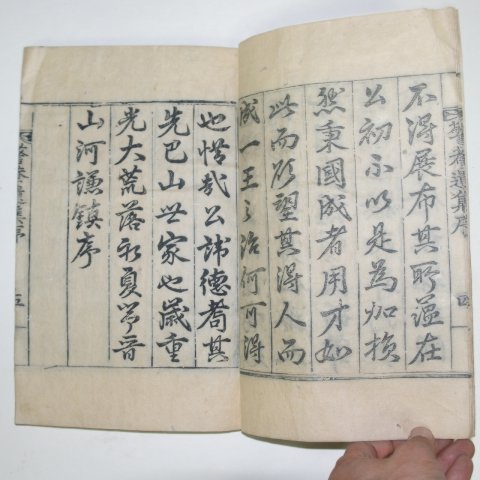 遺集序
四
不得展布其所蘊在
公初不以是為加損
然秉國成者用才如
此而欲望其得人而
成一王之治何可得
也惜哉公諱德其
先巴山世家也歲重
光大荒落夏晉
山河謙鎮序
集序
五